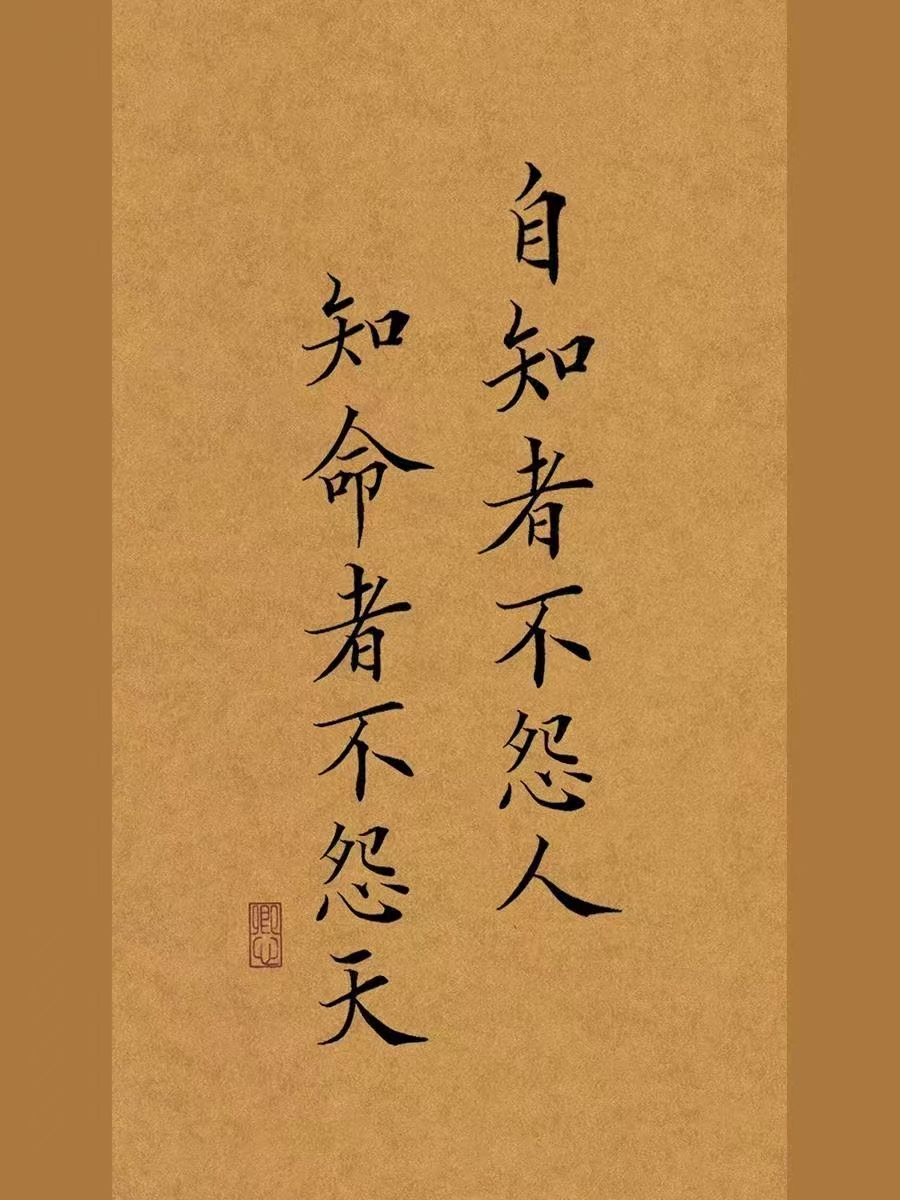 自知者不怨人
知命者不怨天